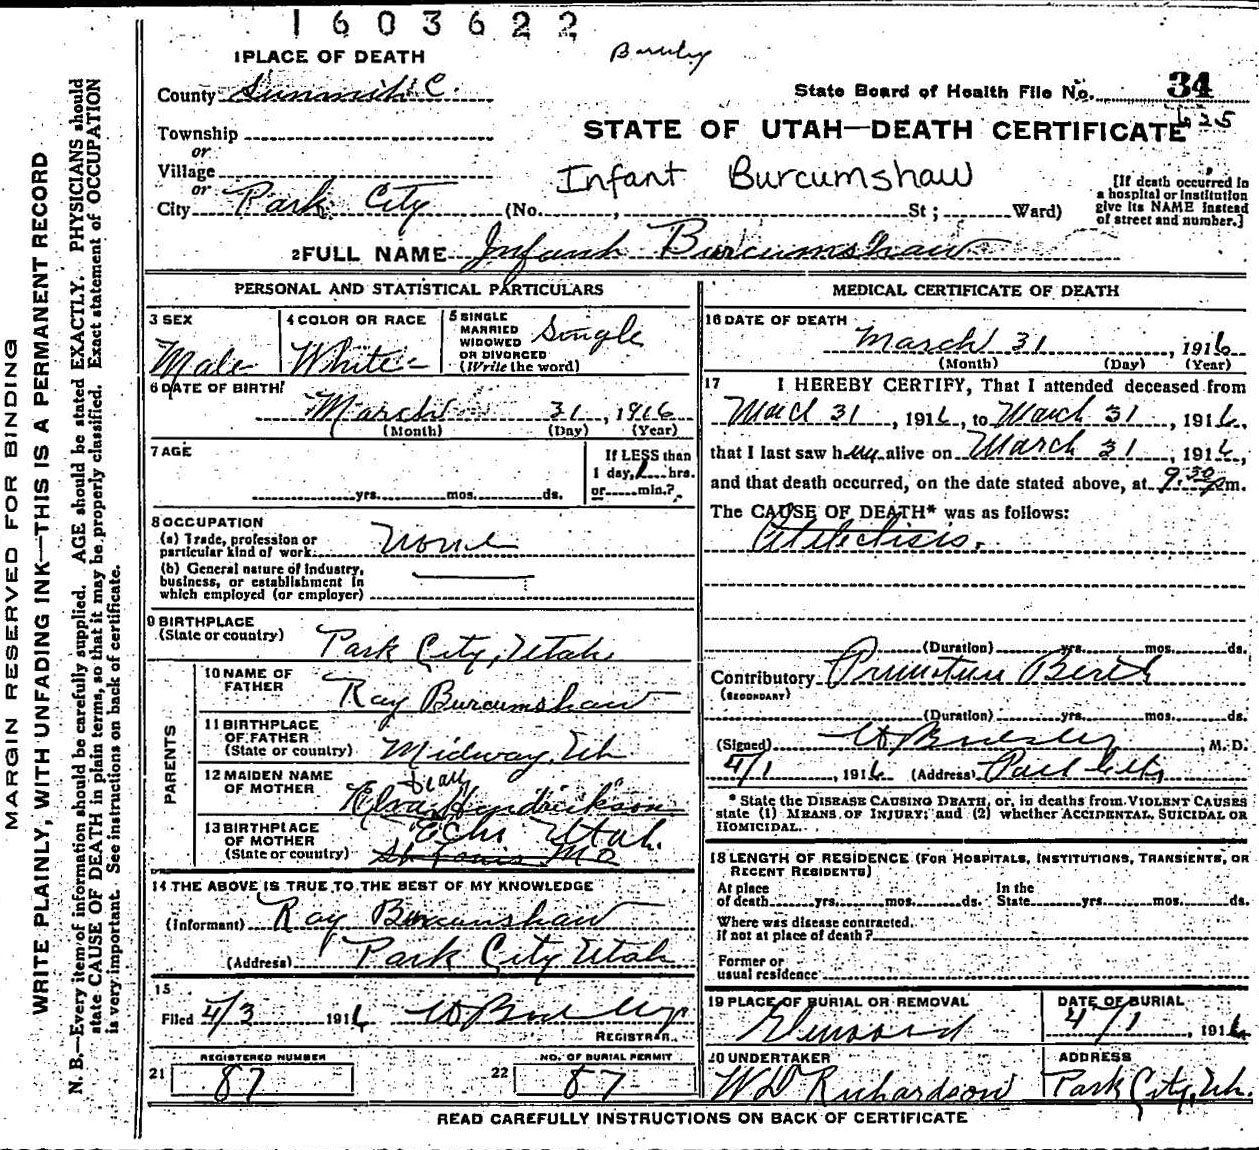 1603622
1 PLACE OF DEATH
County Summit C.
State Board of Health File No. 34
625
Township
STATE OF UTAH—DEATH CERTIFICATE
or
Village
or
Infant Burcumshaw
City Park City (No. , St ; Ward)
[If death occurred in
a hospital or institution
give its NAME instead
of street and number.]
2 FULL NAME Infant Burcumshaw
PERSONAL AND STATISTICAL PARTICULARS
3 SEX
Male
4 COLOR OR RACE
White
5 SINGLE
MARRIED
WIDOWED
OR DIVORCED
(Write the word)
Single
6 DATE OF BIRTH
March 31, 1916
(Month) (Day) (Year)
7 AGE
yrs. mos. ds.
If LESS than
1 day, hrs.
or min.?
8 OCCUPATION
(a) Trade, profession or
particular kind of work None
(b) General nature of industry,
business, or establishment in
which employed (or employer)
9 BIRTHPLACE
(State or country) Park City, Utah.
PARENTS
10 NAME OF
FATHER Ray Burcumshaw
11 BIRTHPLACE
OF FATHER
(State or country) Midway, Ut
12 MAIDEN NAME
OF MOTHER Elva Hendrickson
13 BIRTHPLACE
OF MOTHER
(State or country) Echo Utah.
St Louis MO
14 THE ABOVE IS TRUE TO THE BEST OF MY KNOWLEDGE
(Informant) Ray Burcumshaw
(Address) Park City Utah
15
Filed 4/3 1916
REGISTRAR.
REGISTERED NUMBER
21 87
NO. OF BURIAL PERMIT
22 87
MEDICAL CERTIFICATE OF DEATH
16 DATE OF DEATH
March 31, 1916
(Month) (Day) (Year)
17 I HEREBY CERTIFY, That I attended deceased from
March 31, 1916, to March 31, 1916,
that I last saw him alive on March 31, 1916,
and that death occurred, on the date stated above, at 9:30 pm.
The CAUSE OF DEATH* was as follows:
Atelectisis.
(Duration) yrs. mos. ds.
Contributory Premature Berth
(SECONDARY)
(Duration) yrs. mos. ds.
(Signed) , M. D.
4/1, 1916 (Address) Park City
* State the DISEASE CAUSING DEATH, or, in deaths from VIOLENT CAUSES
state (1) MEANS OF INJURY; and (2) whether ACCIDENTAL, SUICIDAL OR
HOMICIDAL.
18 LENGTH OF RESIDENCE (FOR HOSPITALS, INSTITUTIONS, TRANSIENTS, OR
RECENT RESIDENTS)
At place
of death yrs. mos. ds.
In the
State yrs. mos. ds.
Where was disease contracted,
if not at place of death?
Former or
usual residence
19 PLACE OF BURIAL OR REMOVAL
Glenwood
DATE OF BURIAL
4/1, 1916
20 UNDERTAKER
W D Richardson
ADDRESS
Park City, Ut.
READ CAREFULLY INSTRUCTIONS ON BACK OF CERTIFICATE
MARGIN RESERVED FOR BINDING
WRITE PLAINLY, WITH UNFADING INK—THIS IS A PERMANENT RECORD
N. B.—Every item of information should be carefully supplied. AGE should be stated EXACTLY. PHYSICIANS should
state CAUSE OF DEATH in plain terms, so that it may be properly classified. Exact statement of OCCUPATION
is very important. See instructions on back of certificate.